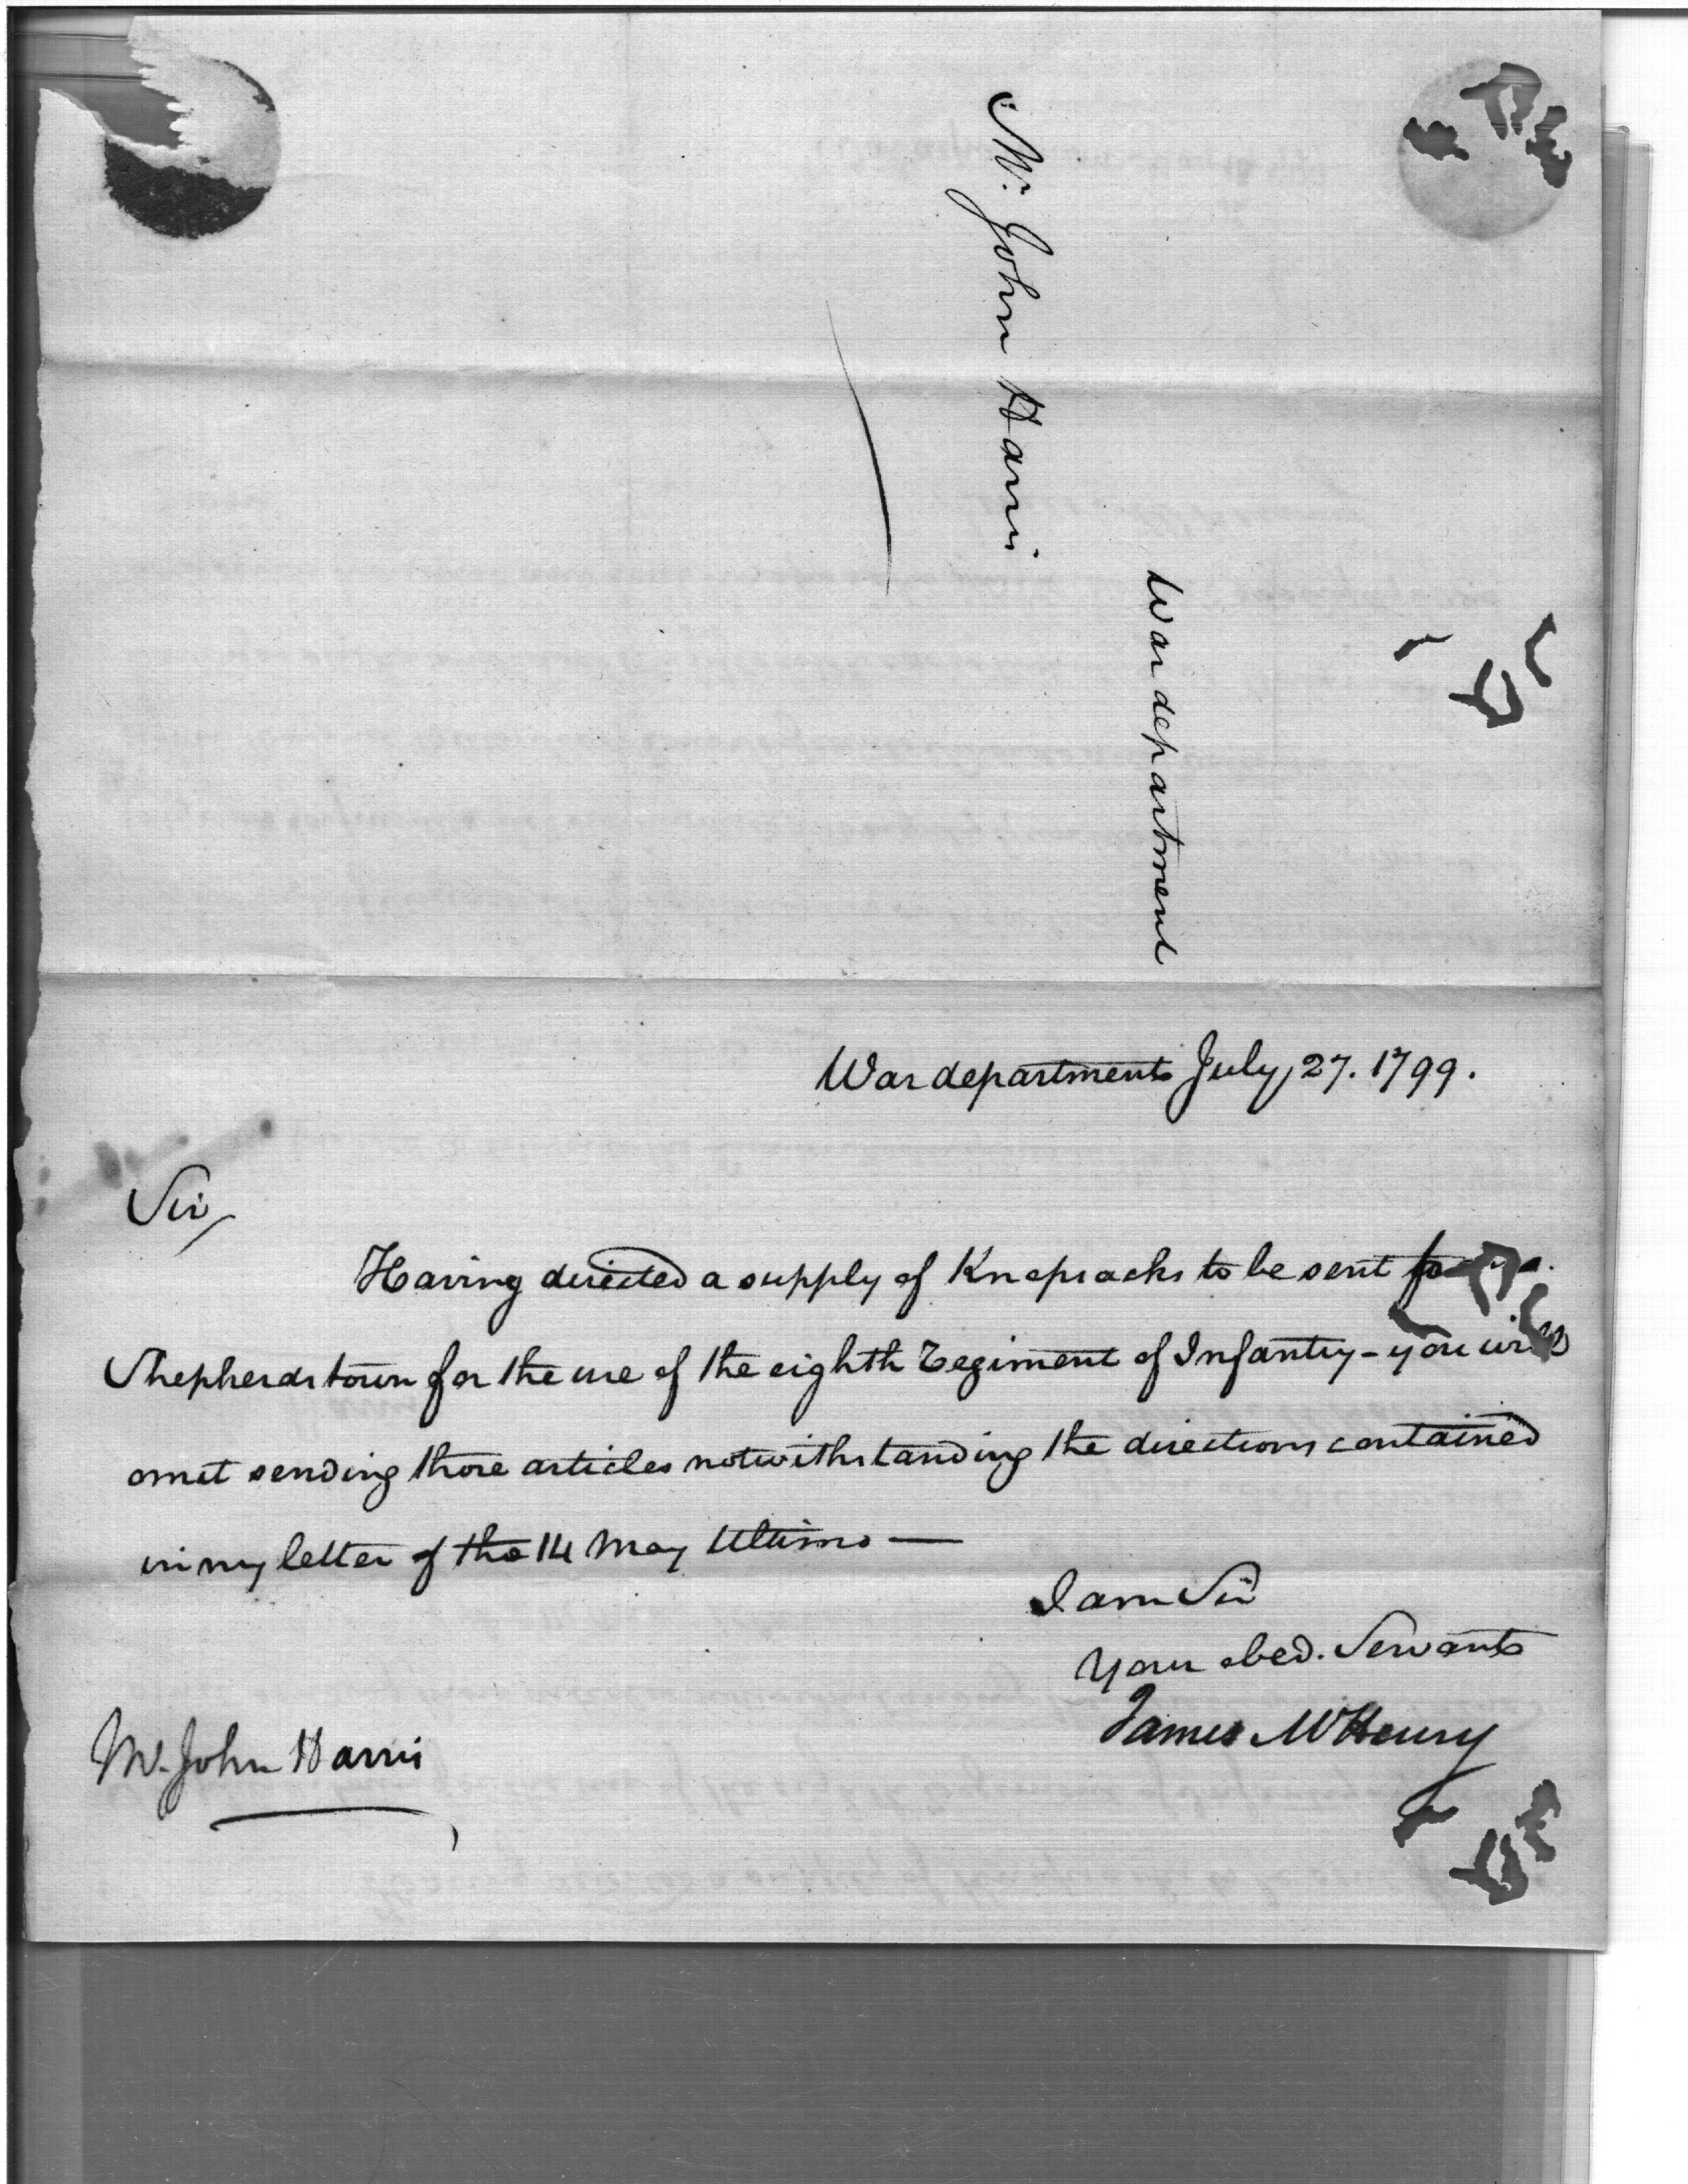 Mr. John Harris
War department
War department July, 27. 1799.
Sir,
Having directed a supply of Knapsacks to be sent
Shepherdstown for the use of the eighth Regiment of Infantry - you will
omit sending those articles notwithstanding the directions contained
in my letter of the 14 May Ultimo —
I am Sir
your obed. Servant
James McHenry
Mr. John Harris